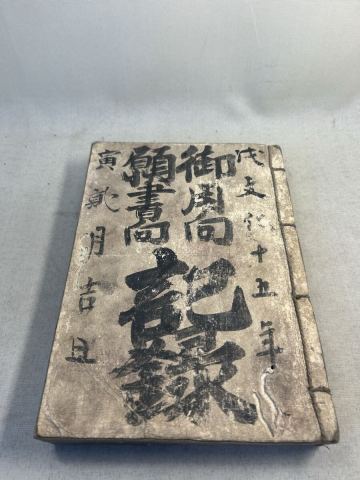 戊文化十五年
御用向
願書向
記録
寅月吉旦